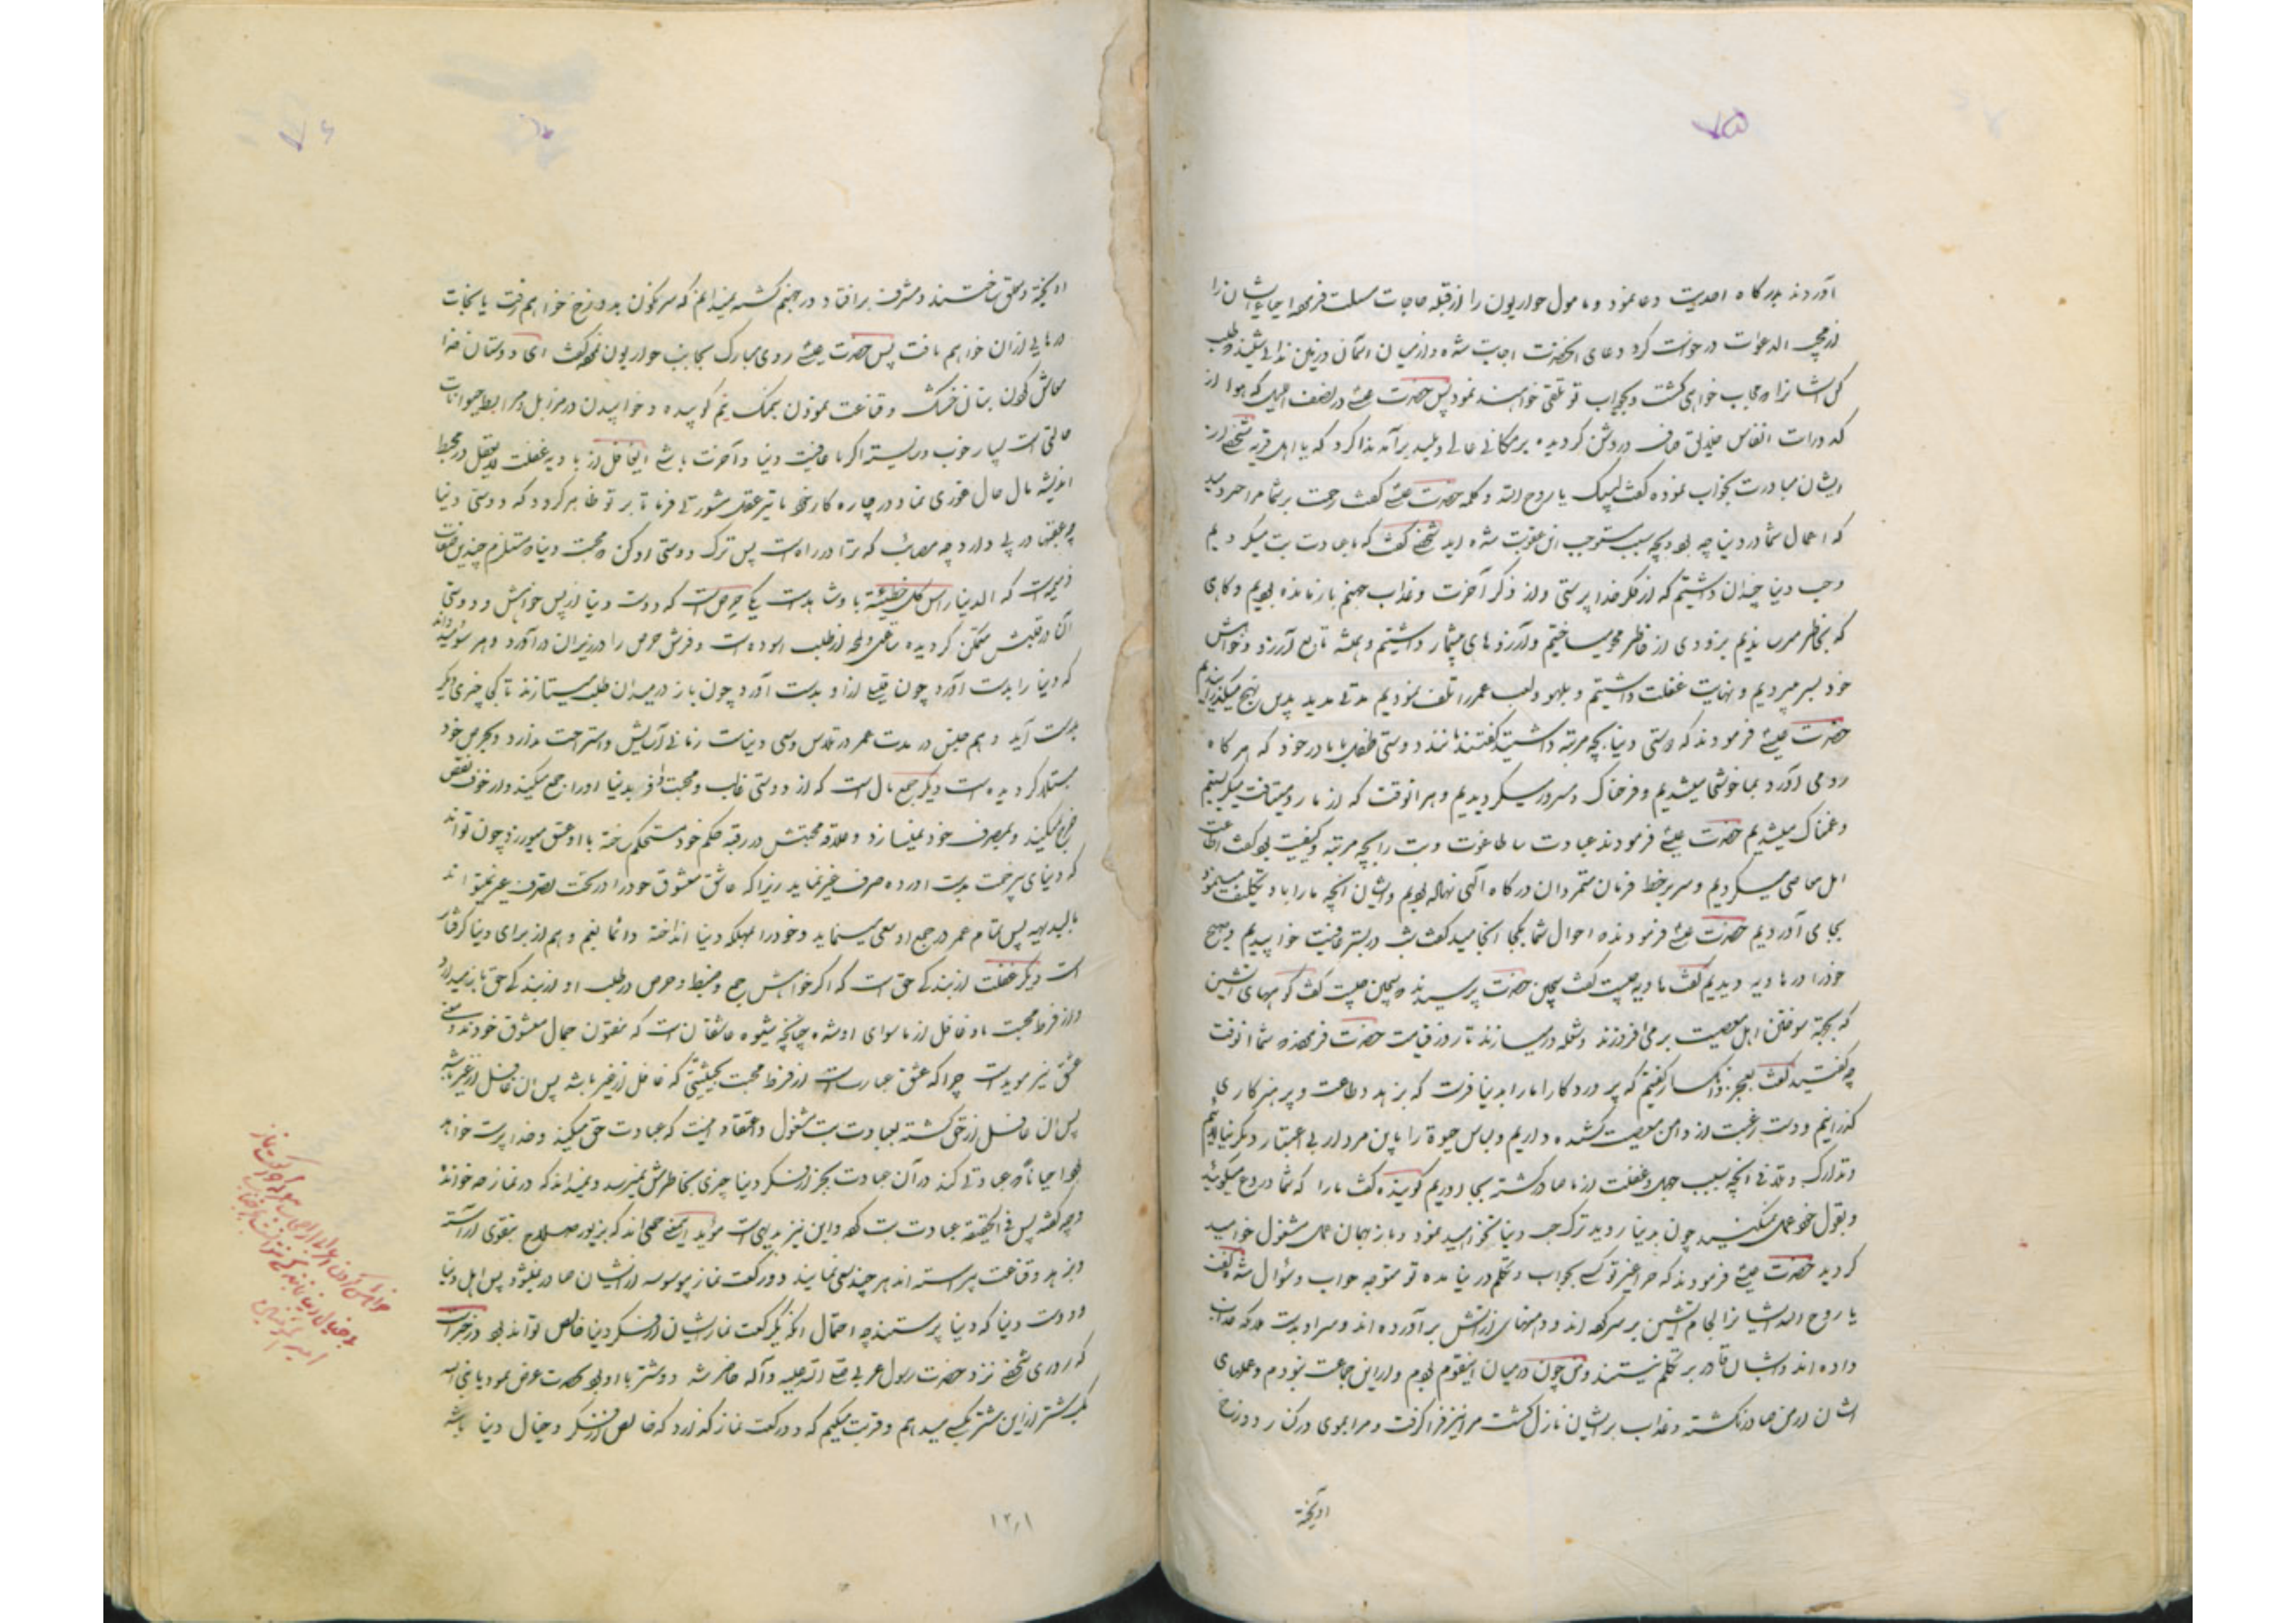 ۷۵
آوردند بدرگاه احدیت دعا نمود و مامول حواریون را از قبله حاجات مسئلت فرمود احیاء ایشان را
از مجیب الدعوات درخواست کرد دعای آنحضرت اجابت شده و از میان آسمان و زمین ندائی شنید
خواهی گشت و بجواب تو تلقی خواهند نمود پس حضرت عیسی در نصف اللیل که هوا از
کدورات انفاس خلایق صاف و روشن گردیده بر مکانی عالی و بلند برآمد ندا کرد که یا اهل قریه شخصی از
ایشان مبادرت بجواب نموده گفت لبیک یا روح الله و کلمه حضرت عیسی گفت رحمت بر شما مرا خبر دهید
که اعمال شما در دنیا چه بود و بچه سبب مستوجب این عقوبت شده اید شخص گفت که ما عبادت بت میکردیم
و حب دنیا چندان داشتیم که از فکر خدا پرستی و از ذکر آخرت و عذاب جهنم باز مانده بودیم و گاهی
که بخاطر میرسانیدیم بزودی از خاطر محو میساختیم و آرزوهای بیشمار داشتیم و همیشه تابع آرزو و خواهش
خود بسر میبردیم و نهایت غفلت داشتیم و بلهو و لعب عمر را تلف نمودیم مدتی مدید بدین نهج میگذرانیدیم
حضرت عیسی فرمودند که دوستی دنیا بچه مرتبه داشتید گفتند مانند دوستی طفل با مادر خود که هرگاه
رو می آورد بما خوشحال میشدیم و فرحناک و مسرور میگردیدیم و هر انوقت که از ما رو میتافت میگریستیم
و غمناک میشدیم حضرت عیسی فرمودند عبادت طاغوت و بت را بچه مرتبه و کیفیت بود گفت اطاعت
اهل معاصی میکردیم و سر بر خط فرمان متمردان درگاه الهی نهاده بودیم و ایشان آنچه ما را باو تکلیف مینمودند
بجا می آوردیم حضرت عیسی فرمودند احوال شما بکجا انجامید گفت شب در بستر عافیت خوابیدیم و صبح
خود را در هاویه دیدیم گفت هاویه چیست گفت سجین حضرت پرسیدند سجین چیست گفت کوههای آتشین
که بجهة سوختن اهل معصیت بر می افروزند و شعله ور میسازند تا روز قیامت حضرت فرمودند شما انوقت
چه گفتید گفت بعجز و انکسار گفتیم که پروردگارا ما را بدنیا فرست که بزهد و طاعت و پرهیزکاری
گذرانیم و دست رغبت از دامن معصیت کشیده داریم و لباس حیوة را باین مردار بی اعتبار دیگر نیالائیم
و تدارک و تلافی آنچه بسبب جهل و غفلت از ما صادر گشته بجا آوریم گوینده گفت ما را که شما دروغ میگوئید
و بقول خود عمل نمیکنید چون بدنیا روید ترک حب دنیا نخواهید نمود و باز بهمان عمل مشغول خواهید
گردید حضرت عیسی فرمودند که چرا غیر تو کسی بجواب و تکلم در نیامده تو متوجه جواب و سئوال شده گفت
یا روح الله ایشانرا لجام آتشین بر سر کرده اند و دهنهای از آتش بر آورده اند
داده اند و ایشان قادر بر تکلم نیستند و من چون در میان اینقوم بودم و از این جماعت نبودم و عملهای
ایشان از من صادر نگشته و عذاب بر ایشان نازل گشت مرا نیز فرا گرفت و مرا بموی در کنار دوزخ
آویخته
۷۶
آویخته و معلق ساختند و مشرف بر افتادن در جهنم گشته نمیدانم که سرنگون بدوزخ خواهم رفت یا نجات
و رهایی از آن خواهم یافت پس حضرت عیسی روی مبارک بجانب حواریون نمود گفت ای دوستان خدا
معاش کردن بنان خشک و قناعت نمودن بنمک نیم کوبیده و خوابیدن در مزابل و مرابط حیوانات
حالتی است بسیار خوب و شایسته اگر با عافیت دنیا و آخرت باشی ایغافل از بادیه غفلت
اندیشه مآل حال خود غوری نما و در چاره کار خود با پیر عقل مشورتی فرما تا بر تو ظاهر گردد که دوستی دنیا
چه عقبها در پی دارد و چه مصائب که ترا در راه است پس ترک دوستی او کن و محبت دنیا مستلزم چندین صفات
ذمیمه است که الدنیا راس کل خطیئة باو شاهد است یکی حرص است که دوست دنیا از پس خواهش و دوستی
آن در قلبش متمکن گردیده از طلب آسوده است و فرش حرص را در زیر ران در آورد و هر سو میدواند
که دنیا را بدست آورد چون قلیلی از او بدست آورد چون باز در میدان طلب میتازد تا یکی چیزی دیگر
بدست آید و هم چنین در مدت عمر در تلاش و سعی دنیاست زمانی آسایش و استراحت ندارد و بحرص خود
مبتلا گردیده است دیگر جمع مال است که از دوستی غالب و محبت وافر بدنیا او را جمع میکند و از خوف نقص
خرج نمیکند و بمصرف خود نمیرساند و علاقه محبتش در رقبه حکم خود مستحکم ساخته با او عشق میورزد چون تواند
که دنیای پر زحمت بدست آورده صرف غیر نماید زیرا که عاشق معشوق خود را در تحت تصرف غیر نمیتواند
بالبدیهه پس تمام عمر در جمع او سعی مینماید و خود را بمهلکه دنیا انداخته دائما بغم و هم از برای دنیا گرفتار
است دیگر غفلت از بندگی حق است که اگر خواهش جمع و ضبط و حرص در طلب او از بندگی حق باز میدارد
و از فرط محبت باو غافل از ماسوای او شده چنانچه شیوه عاشقان است که مفتون جمال معشوق خودند و معنی
عشق نیز موید است چرا که عشق عبارت است از فرط محبت بحیثیتی که غافل از غیر باشد پس آن غافل از غیر باشد
پس آن غافل از حق گشته بعبادت بت مشغول و اعتقاد وی اینست که عبادت حق میکند و خدا پرست خواهد
بود احیانا که عبادتی کند در آن عبادت بجز از فکر دنیا چیزی بخاطرش نمیرسد و نمیداند که در نماز چه خوانده
و چه گفته پس فی الحقیقه عبادت بت کرده و این نیز بدیهی است موید اینمعنی جمعی اند که بزیور صلاح و تقوی آراسته
و بزهد و قناعت پیراسته اند هر چند سعی نمایند دو رکعت نماز بی وسوسه از ایشان صادر نمیشود پس اهل دنیا
و دوست دنیا که دنیا پرستند چه احتمال آنکه یک رکعت نماز ایشان از فکر دنیا خالص تواند بود در خبر است
که روزی شخصی نزد حضرت رسول عربی صلی الله علیه و آله حاضر شد دو شتر با او بود بحضرت عرض نمود یا نبی الله
یک شتر از این شتر بکسی میدهم و قربت میکنم که دو رکعت نماز گذارد که خالص از فکر و خیال دنیا باشد